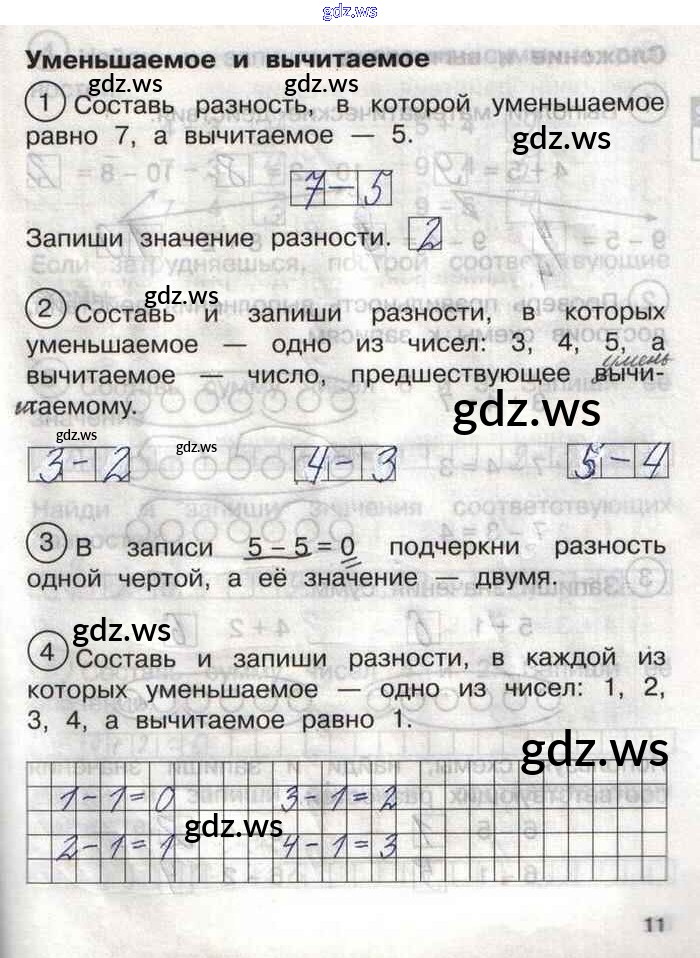 gdz.ws
Уменьшаемое и вычитаемое
gdz.ws gdz.ws
1 Составь разность, в которой уменьшаемое
gdz.ws
равно 7, а вычитаемое — 5.
7 – 5
Запиши значение разности. 2
gdz.ws
2 Составь и запиши разности, в которых
уменьшаемое — одно из чисел: 3, 4, 5, а
умень
вычитаемое — число, предшествующее вычи-
таемому.
gdz.ws
gdz.ws gdz.ws
3 – 2 4 – 3 5 – 4
3 В записи 5 – 5 = 0 подчеркни разность
одной чертой, а её значение — двумя.
gdz.ws
4 Составь и запиши разности, в каждой из
которых уменьшаемое — одно из чисел: 1, 2,
3, 4, а вычитаемое равно 1.
gdz.ws
1 – 1 = 0 3 – 1 = 2
gdz.ws
2 – 1 = 1 4 – 1 = 3
11